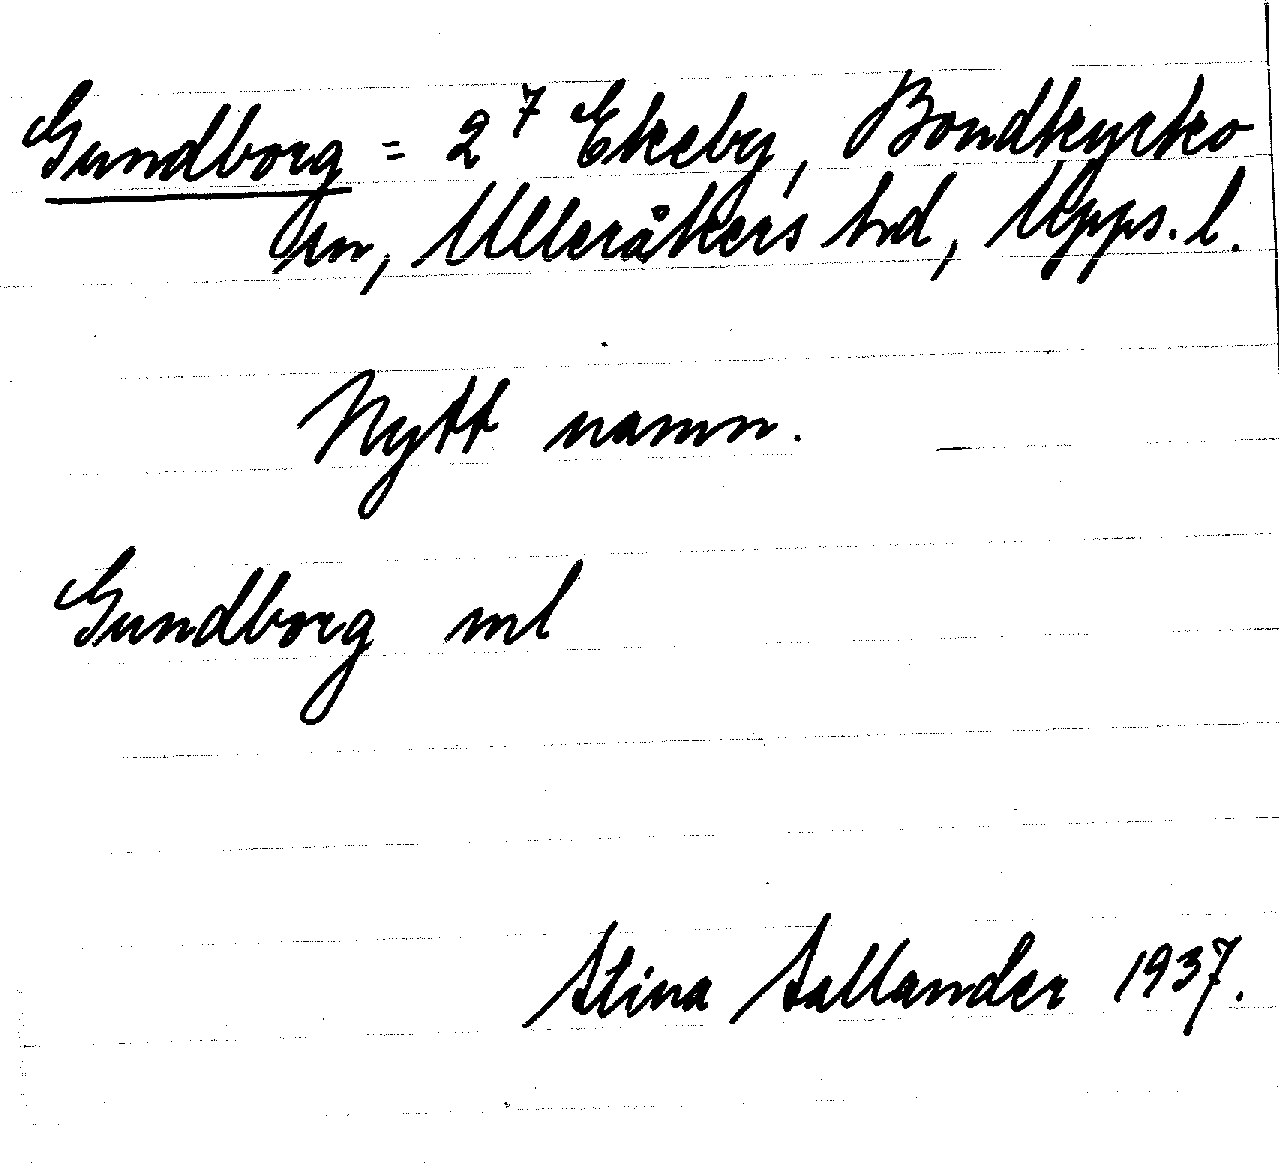 Gundborg = 2⁷ Ekeby, Bondkyrko
sn, Ulleråkers hd, Upps. l.
Nytt namn.
Gundborg ml
Stina Sallander 1937.